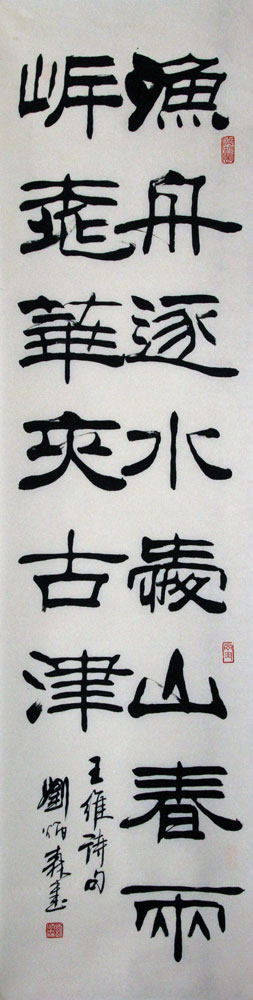 漁舟逐水愛山春兩
岸桃華夾古津
王維詩句
劉炳森書